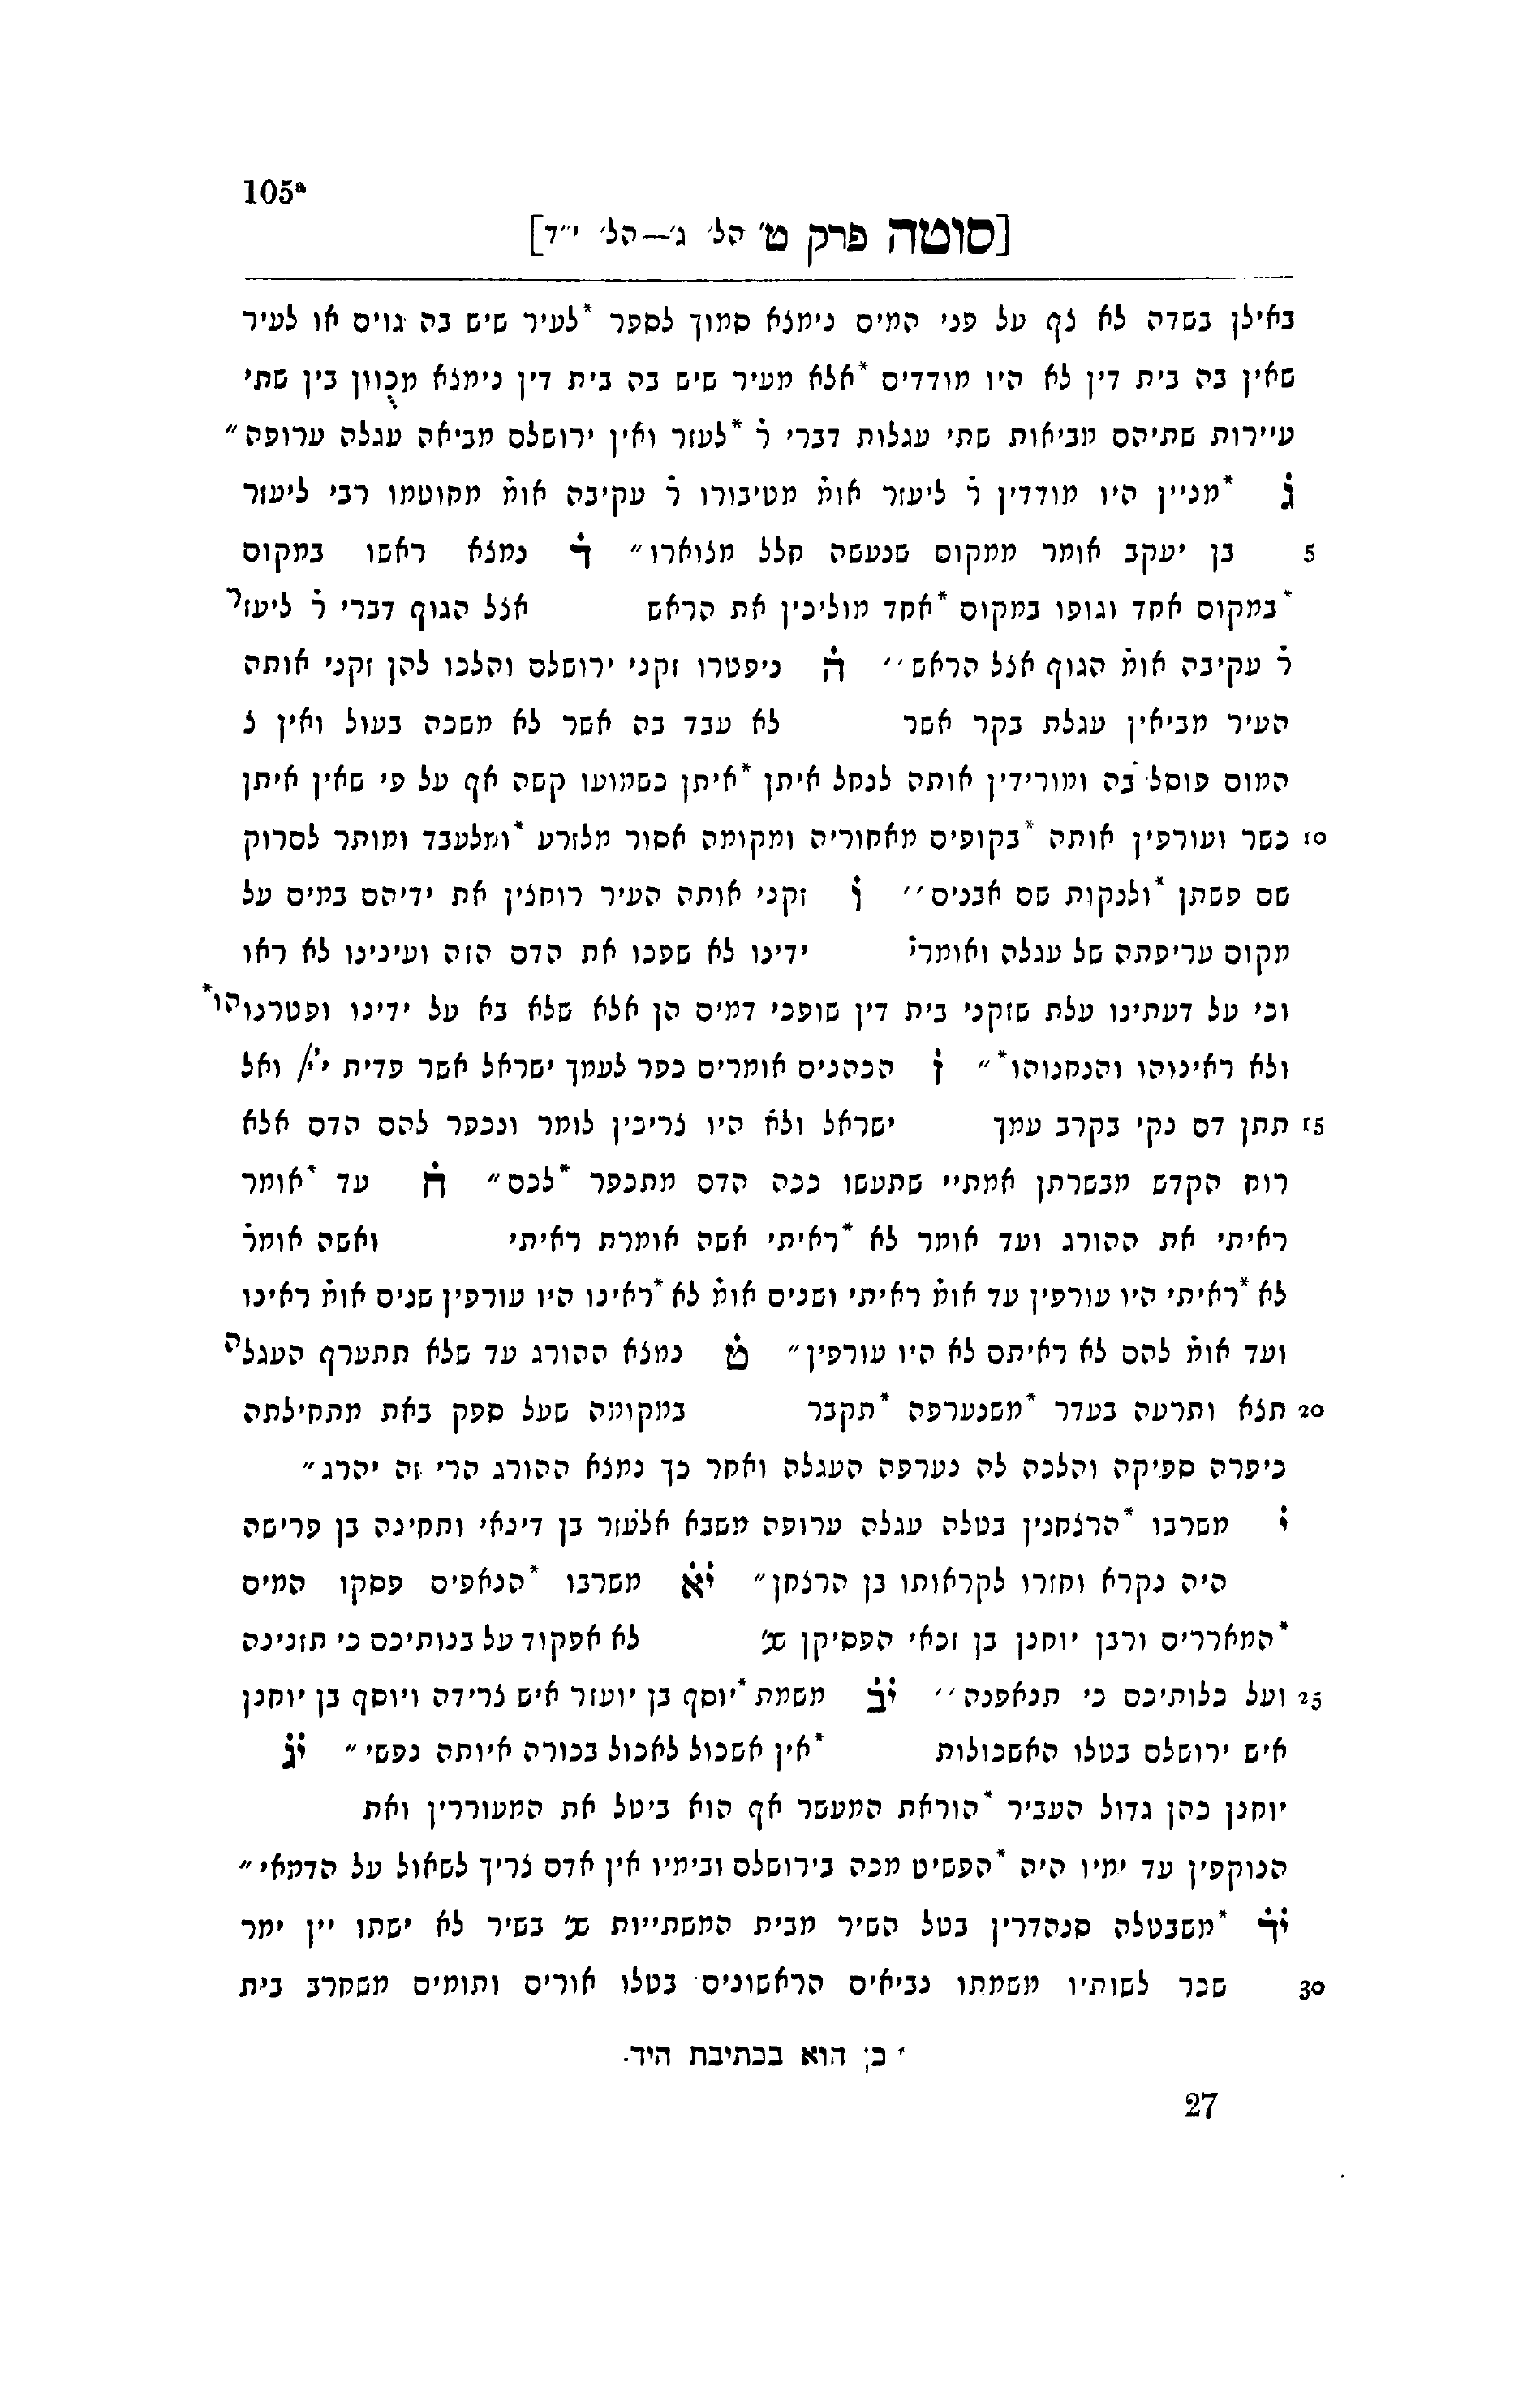 105ª
[סוטה פרק ט׳ הל׳ ג׳—הל׳ י״ד]
באילן בשדה לא צף על פני המים נימצא סמוך לספר *לעיר שיש בה גוים או לעיר
שאין בה בית דין לא היו מודדים *אלא מעיר שיש בה בית דין נימצא מכוון בין שתי
עיירות שתיהם מביאות שתי עגלות דברי ר̇ *לעזר ואין ירושלם מביאה עגלה ערופה״
ג̇ *מניין היו מודדין ר̇ ליעזר אומ̇ מטיבורו ר̇ עקיבה אומ̇ מחוטמו רבי ליעזר
5 בן יעקב אומר ממקום שנעשה חלל מצוארו״ ד̇ נמצא ראשו במקום
*במקום אחד וגופו במקום *אחד מוליכין את הראש אצל הגוף דברי ר̇ ליעזר
ר̇ עקיבה אומ̇ הגוף אצל הראש׳׳ ה̇ ניפטרו זקני ירושלם והלכו להן זקני אותה
העיר מביאין עגלת בקר אשר לא עבד בה אשר לא משכה בעול ואין צ
המום פוסל בה ומורידין אותה לנחל איתן *איתן כשמועו קשה אף על פי שאין איתן
10 כשר ועורפין אותה *בקופים מאחוריה ומקומה אסור מלזרע *ומלעבד ומותר לסרוק
שם פשתן *ולנקות שם אבנים׳׳ ו̇ זקני אותה העיר רוחצין את ידיהם במים על
מקום עריפתה של עגלה ואומרי̇ ידינו לא שפכו את הדם הזה ועינינו לא ראו
וכי על דעתינו עלת שזקני בית דין שופכי דמים הן אלא שלא בא על ידינו ופטרנוהו*
ולא ראינוהו והנחנוהו*״ ז̇ הכהנים אומרים כפר לעמך ישראל אשר פדית י׳י/ ואל
15 תתן דם נקי בקרב עמך ישראל ולא היו צריכין לומר ונכפר להם הדם אלא
רוח הקדש מבשרתן אמתיי שתעשו ככה הדם מתכפר *לכם״ ח̇ עד *אומר
ראיתי את ההורג ועד אומר לא *ראיתי אשה אומרת ראיתי ואשה אומר̇
לא *ראיתי היו עורפין עד אומ̇ ראיתי ושנים אומ̇ לא *ראינו היו עורפין שנים אומ̇ ראינו
ועד אומ̇ להם לא ראיתם לא היו עורפין״ ט̇ נמצא ההורג עד שלא תתערף העגלה
20 תצא ותרעה בעדר *משנערפה *תקבר במקומה שעל ספק באת מתחילתה
כיפרה ספיקה והלכה לה נערפה העגלה ואחר כך נמצא ההורג הרי זה יהרג״
י̇ משרבו *הרצחנין בטלה עגלה ערופה משבא אלעזר בן דינאי ותחינה בן פרישה
היה נקרא וחזרו לקראותו בן הרצחן״ י̇א̇ משרבו *הנאפים פסקו המים
*המאררים ורבן יוחנן בן זכאי הפסיקן שנ׳ לא אפקוד על בנותיכם כי תזנינה
25 ועל כלותיכם כי תנאפנה׳׳ י̇ב̇ משמת *יוסף בן יועזר איש צרידה ויוסף בן יוחנן
איש ירושלם בטלו האשכולות *אין אשכול לאכול בכורה איותה נפשי״ י̇ג̇
יוחנן כהן גדול העביר *הוראת המעשר אף הוא ביטל את המעוררין ואת
הנוקפין עד ימיו היה *הפטיש מכה בירושלם ובימיו אין אדם צריך לשאול על הדמאי״
י̇ד̇ *משבטלה סנהדרין בטל השיר מבית המשתייות שנ׳ בשיר לא ישתו יין ימר
30 שכר לשותיו משמתו נביאים הראשונים בטלו אורים ותומים משחרב בית
׳ כ; הוא בכתיבת היד.
27